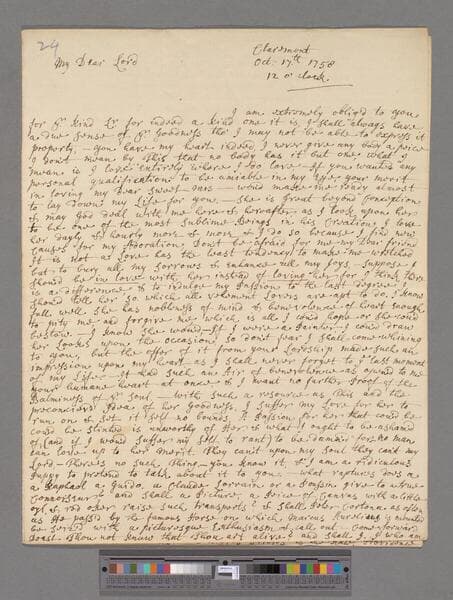 24
Claremont
My Dear Lord
Oct. 17th 1758
12 o'clock.
I am extremely obliged to you
for yr. kind Lr. for indeed a kind one it is, I shall always have
a due sense of yr. Goodness tho' I may not be able to express it
properly. you have my heart indeed I never give any body a peice
I don't mean by this that no body has it but one what I
mean is I love entirely where I do love. If you wanted any
personal qualifications to be amiable in my Eye your merit
in loving my Dear Sweet would make me ready almost
to lay down my Life for you. She is great beyond Conception
& may God deal with me here & hereafter as I look upon her
to be one of the most Sublime Beings in his Creation, I love
her dayly & hourly more & more & I do so because I find new
Causes for my Adoration. Don't be afraid for me my Dear friend
It is not a Love has the least tendency to make me wretched
but to bury all my Sorrows & enhance all my Joys. Suppose I
Should be in love with her instead of loving her for I think there
is a difference & to indulge my Passion to the last degree I
should tell her so which all vehement Lovers are apt to do, I know
full well She has nobleness of mind & benevolence of heart enough
to pity me and forgive me which is all I could hope or she could
bestow I know She wou'd. If I were a Painter I could draw
her Looks upon the occasion, so don't fear I shall come whining
to you, but the offer of it from your Lordship made such an
impression upon my heart as I shall never forget to ye last moment
of my Life. It had such an Air of benevolence as opened to me
your humane heart at once & I want no farther proof of the
Balminess of yr. Soul. with such a resource as this and the
preconceiv'd Idea of her Goodness, I suffer my Love for her to
run on & let it set no bounds. A Passion for her that could be
could be Stinted is unworthy of Her & what I ought to be ashamed
of, (and if I would suffer my self to rant) to be damn'd for. No man
can love up to her Merit. They can't upon my Soul they can't my
Lord. There's no such thing. you know it & I am a ridiculous
Puppy to pretend to talk about it to you. What raptures does a
a Raphael a Guido, a Claude Lorrain or a Poussin give to a true
Connoisseur & and shall a picture, a peice of Canvas with a little
oyl & red oker raise such transports & shall Peter Cortona as often
as He pass'd by the famous Horse on which Marcus Aurelius is mounted
be seized with a picturesque Enthusiasm & call out Come forward
Dost thou not know that thou art alive & and shall I, I who am